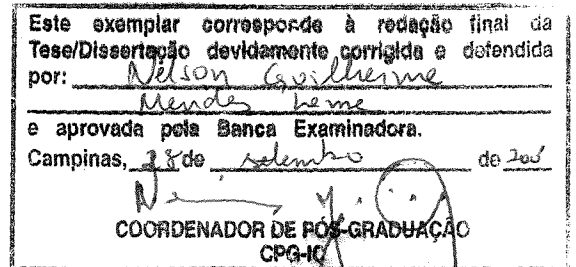 Este exemplar corresponde à redação final da
Tese/Dissertação devidamente corrigida e defendida
por: Nelson Guilherme
Mendes Leme
e aprovada pela Banca Examinadora.
Campinas, 28 de setembro de 200
COORDENADOR DE PÓS-GRADUAÇÃO
CPG-IC